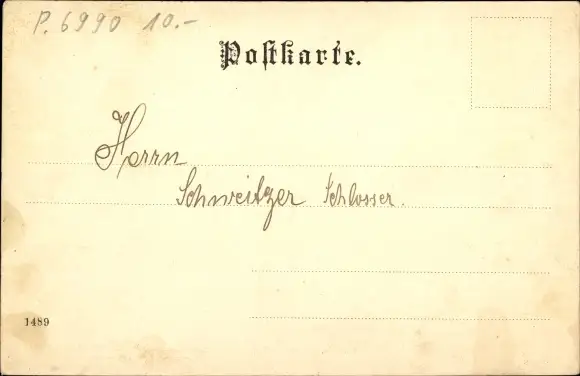 P. 6990 10.-
Postkarte.
Herrn
Schweitzer Schlosser.
1489